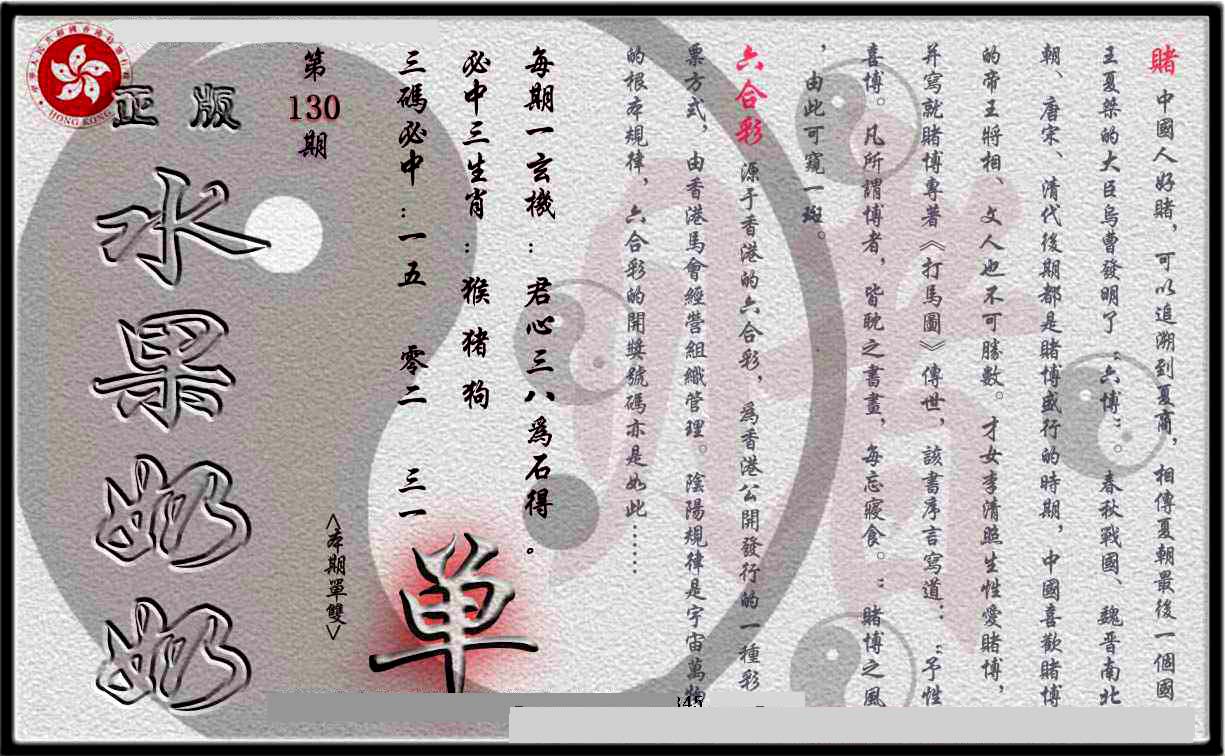 賭 中國人好賭，可以追溯到夏商，相傳夏朝最後一個國
王夏桀的大臣烏曹發明了“六博”。春秋戰國、魏晋南北
朝、唐宋、清代後期都是賭博盛行的時期，中國喜歡賭博
的帝王將相、文人也不可勝數。才女李清照生性愛賭博，
并寫就賭博專著《打馬圖》傳世，該書序言寫道：“予性
喜博。凡所謂博者，皆耽之書畫，每忘寢食。”賭博之風
，由此可窺一斑。
六合彩 源于香港的六合彩，為香港公開發行的一種彩
票方式，由香港馬會經營組織管理。陰陽規律是宇宙萬物
的根本規律，六合彩的開獎號碼亦是如此……
每期一玄機：君心三八為石得。
必中三生肖：猴 猪 狗
三碼必中：一五 零二 三一
单
<本期單雙>
第130期
正版
水果奶奶
HONG KONG
345